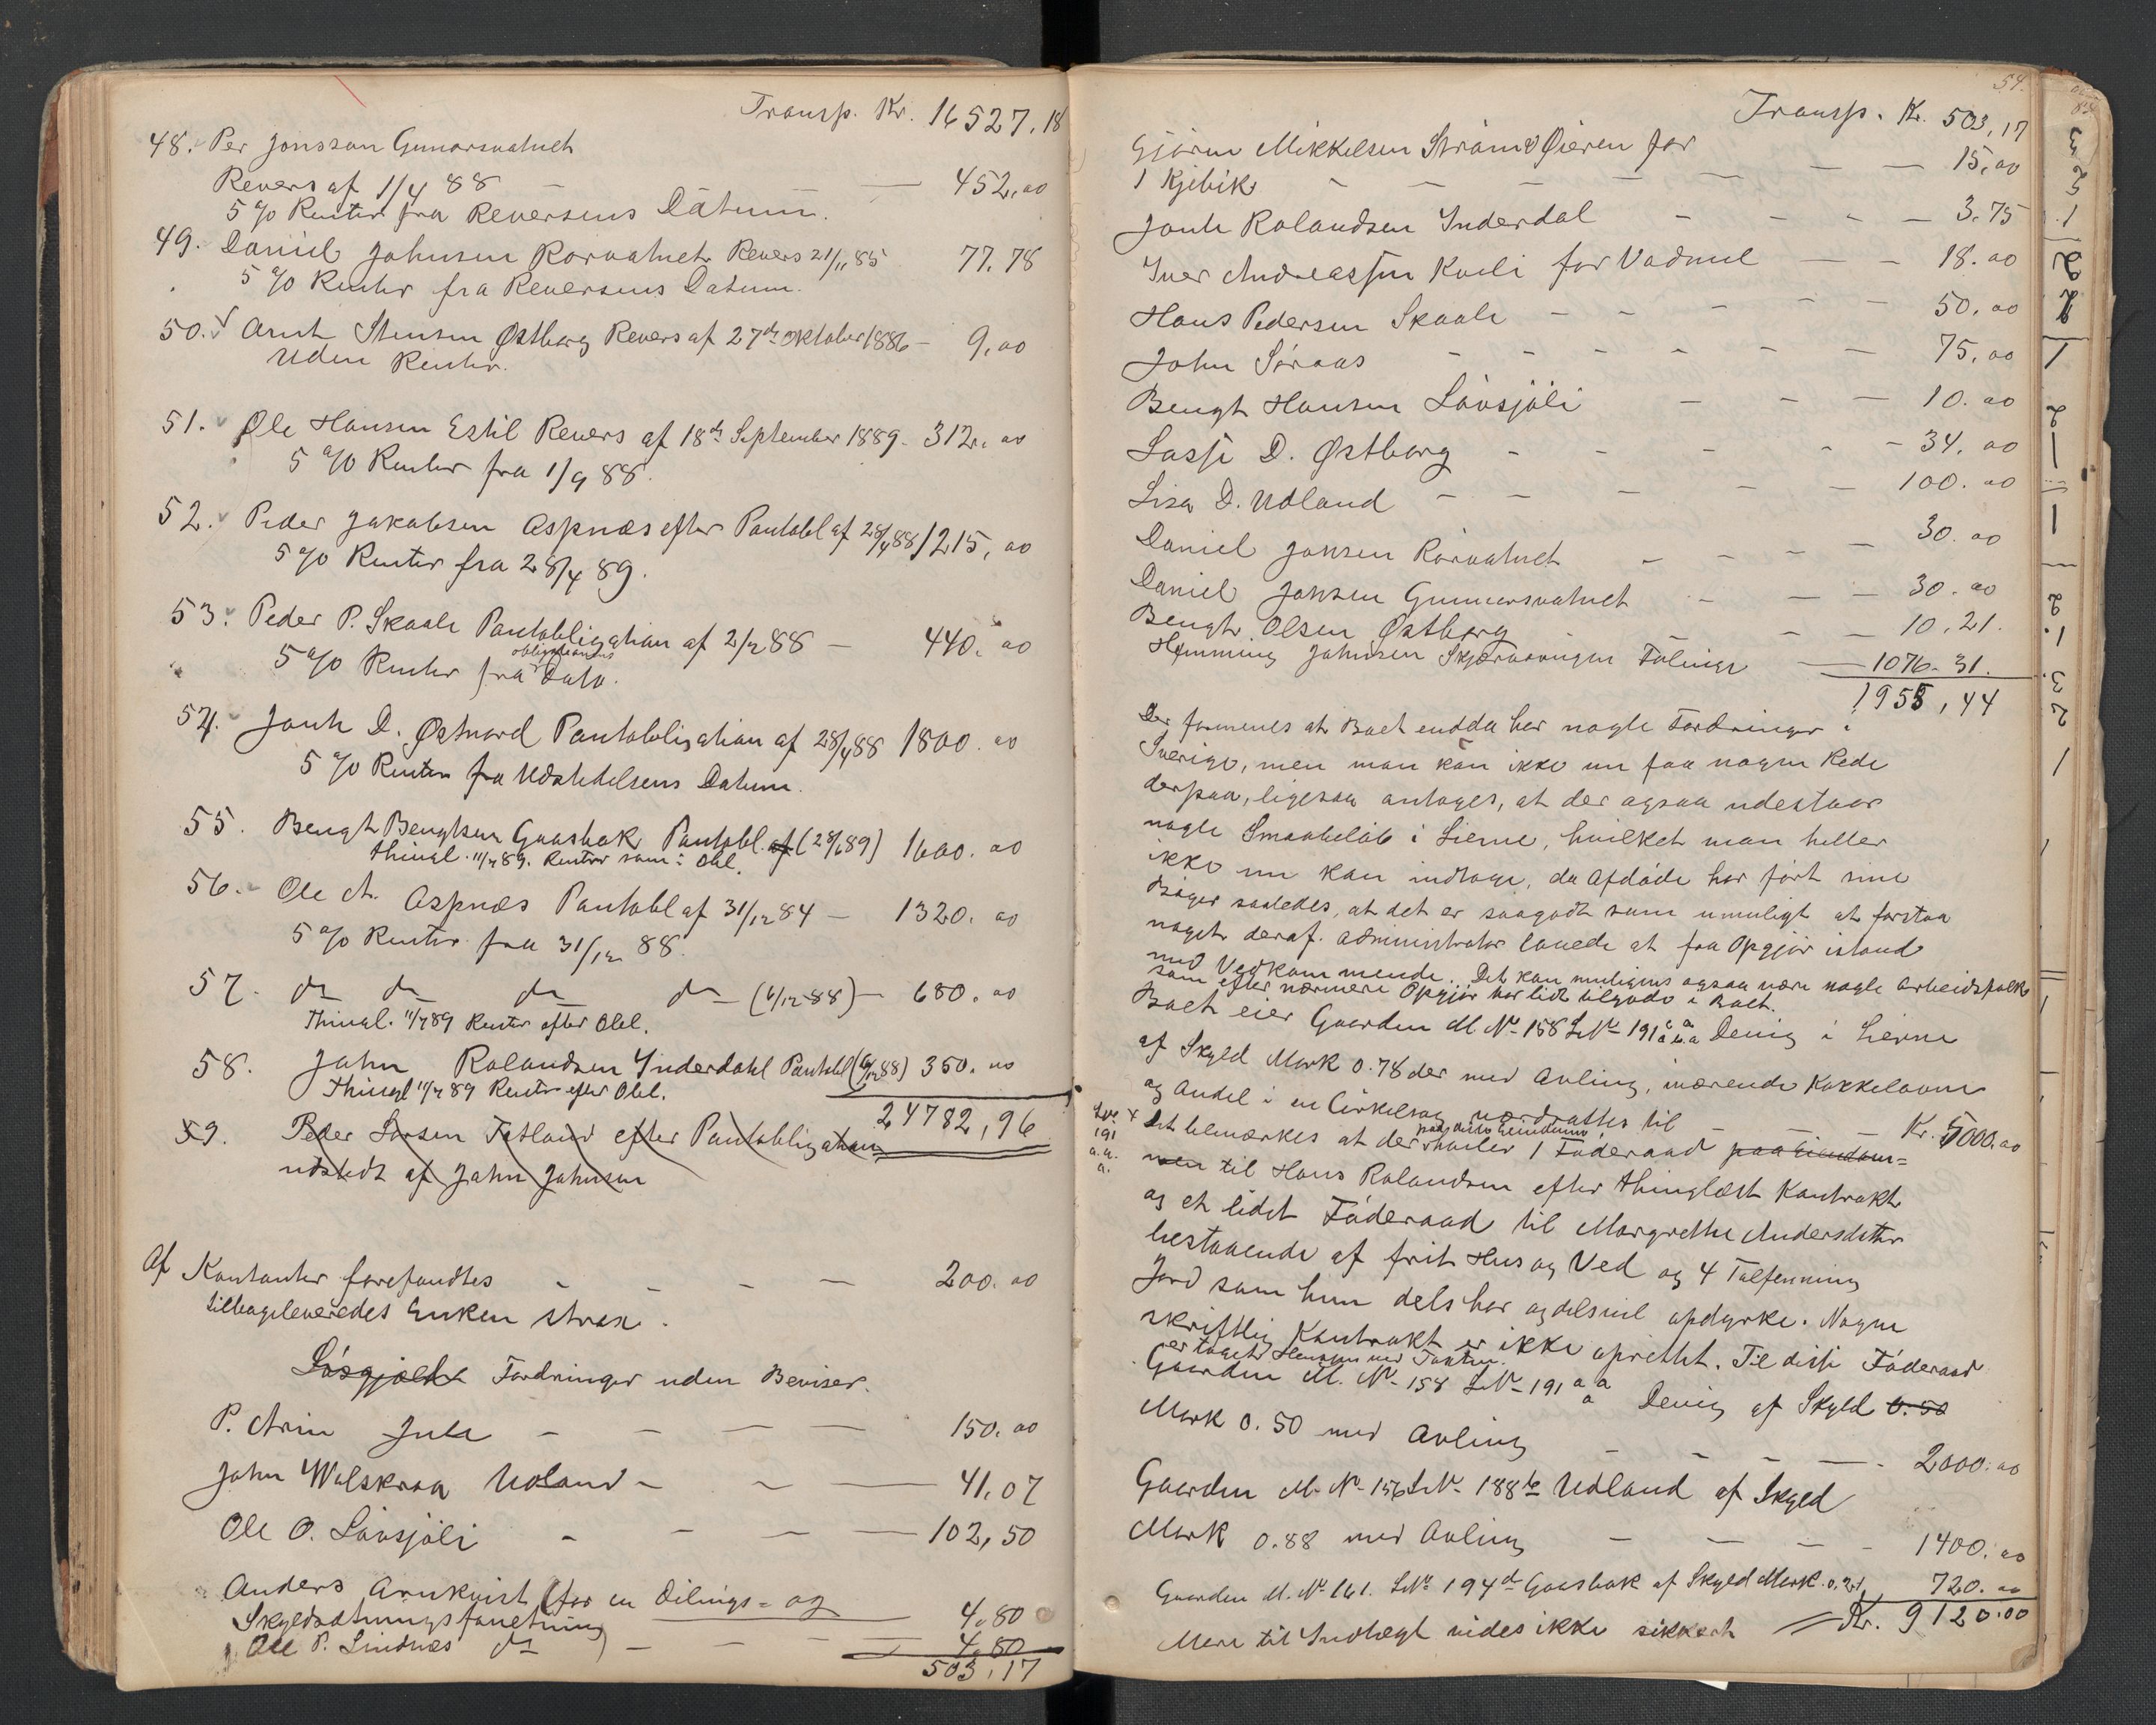 Transp. Kr. 16527,18
48. Per Jonsson Gunnarsvatnet
Revers af 1/4 88 — — — 452,00
5 % Renter fra Reversens Datum.
49. Daniel Johnsen Rørvatnet Revers 21/11 85 77.78
5 % Renter fra Reversens Datum.
50. Arnt Stensen Østborg Revers af 27de Oktober 1886 – 9,00
Uden Renter.
51. Ole Hansen Estil Revers af 18de September 1889 – 312,00
5 % Renter fra 1/9 88.
52. Peder Jakobsen Aspnæs efter Pantobl af 28/4 88 1215,00
5 % Renter fra 28/4 89.
53. Peder P. Skaale Pantobligation af 2/12 88 — 440.00
obligationens
5 % Renter fra Dato.
54. Jonte D. Østnord Pantobligation af 28/4 88 1800.00
5 % Renter fra Udstedelsens Datum.
55. Bengt Bengtsen Gaasbak Pantobl. af (28/6 89) 1600.00
thingl. 11/7 89. Renter som i Obl.
56. Ole A. Aspnæs Pantobl af 31/12 84 — 1320.00
5 % Renter fra 31/12 88.
57. do do do do (6/12 88) — 680.00
Thingl. 11/7 89 Renter efter Obl.
58. John Rolandsen Inderdahl Pantobl (6/12 88) 350.00
Thingl 11/7 89 Renter efter Obl.
24782,96
59. Peder Larsen Totland efter Pantobligation
udstedt af John Johnsen
Af Kontanter forefandtes — — — 200.00
tilbageleveredes Enken strax.
Løsgjæld Fordringer uden Beviser.
P. Arin Jule — — — — 150.00
John Walskraa Udland — — — 41,07
Ole O. Løvsjøli — — — 102,50
Anders Arnkvist (for en Delings- og
Skyldsætningsforretning 4,80
Ole P. Lindnæs do ) — — — 4,80
503,17
54.
Transp. Kr. 503,17
Gjørn Mikkelsen Strøm Øieren for
1 Kjebik — — — — 15,00
Jonte Rolandsen Inderdal — — — 3.75
Iver Andreassen Kveli for Vadmel — — 18.00
Hans Pedersen Skaale — — — 50.00
John Søraas — — — — 75.00
Bengt Hansen Løvsjøli — — — 10.00
Lasse D. Østborg — — — 34.00
Lisa D. Udland — — — — 100.00
Daniel Jonsen Rørvatnet — — — 30.00
Daniel Jonsen Gunnarsvatnet — — — 30.00
Bengt Olsen Østborg — — 10.21.
Hemming Johnsen Skjærvangen Følinge — 1076.31.
1955,44
Der formenes at Boet endda har nogle Fordringer i
Sverige, men man kan ikke nu faa nogen Rede
derpaa, ligesaa antages, at der ogsaa udestaar
nogle Smaabeløb i Lierne, hvilket man heller
ikke nu kan indtage, da Afdøde har ført sine
Bøger saaledes, at det er saagodt som umuligt at forstaa
noget deraf. Administrator lovede at faa Opgjør istand
med Vedkommende. Det kan muligens ogsaa være nogle Arbeidsfolk
som efter nærmere Opgjør har lidt tilgode i Boet.
Boet eier Gaarden M No 158 LNo 191 a a a Devig i Lierne
af Skyld Mark 0.78 der med Avling, værende Kakkelovne
og Andel i en Cirkelsag værdsattes til — — Kr. 5000.00
LNo 191 a. a. a.
paa dette Eiendomme
Det bemærkes at der hviler 1 Føderaad paa Eiendom-
men til Hans Rolandsen efter thinglæst Kontrakt
og et lidet Føderaad til Margrethe Andersdatter
bestaaende af frit Hus og Ved og 4 Tolfenning
Jord som hun dels har og dels vil opdyrke. Nogen
skriftlig Kontrakt er ikke oprettet. Til disse Føderaad
er taget Hensyn ved Taxten.
Gaarden M. No 158 LNo 191 a a a Devig af Skyld 0.50
Mark 0.50 med Avling — — — 2000.00
Gaarden M No 156 LNo 188 b Udland af Skyld
Mark 0.88 med Avling — — — 1400.00
Gaarden M. No 161. LNo 194 d Gaasbak af Skyld Mark 0.21. 720.00
Mere til Indtægt vides ikke sikkert Kr. 9120.00